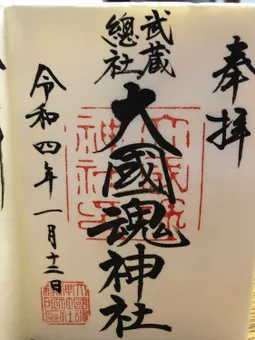 奉拝
武蔵
總社
大國魂神社
令和四年一月十二日